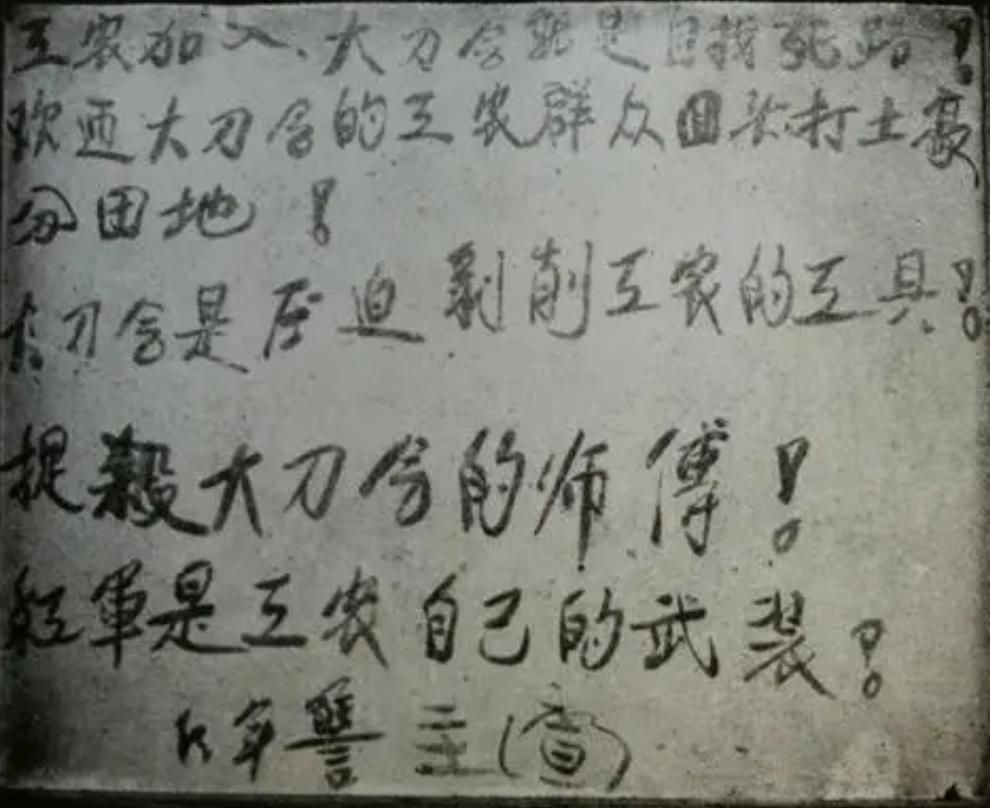 工农加入、大刀会就是自找死路!
欢迎大刀会的工农群众回头打土豪
分田地!
大刀会是压迫剥削工农的工具!
捉殺大刀会的师傅!
紅軍是工农自己的武装!
(宣)